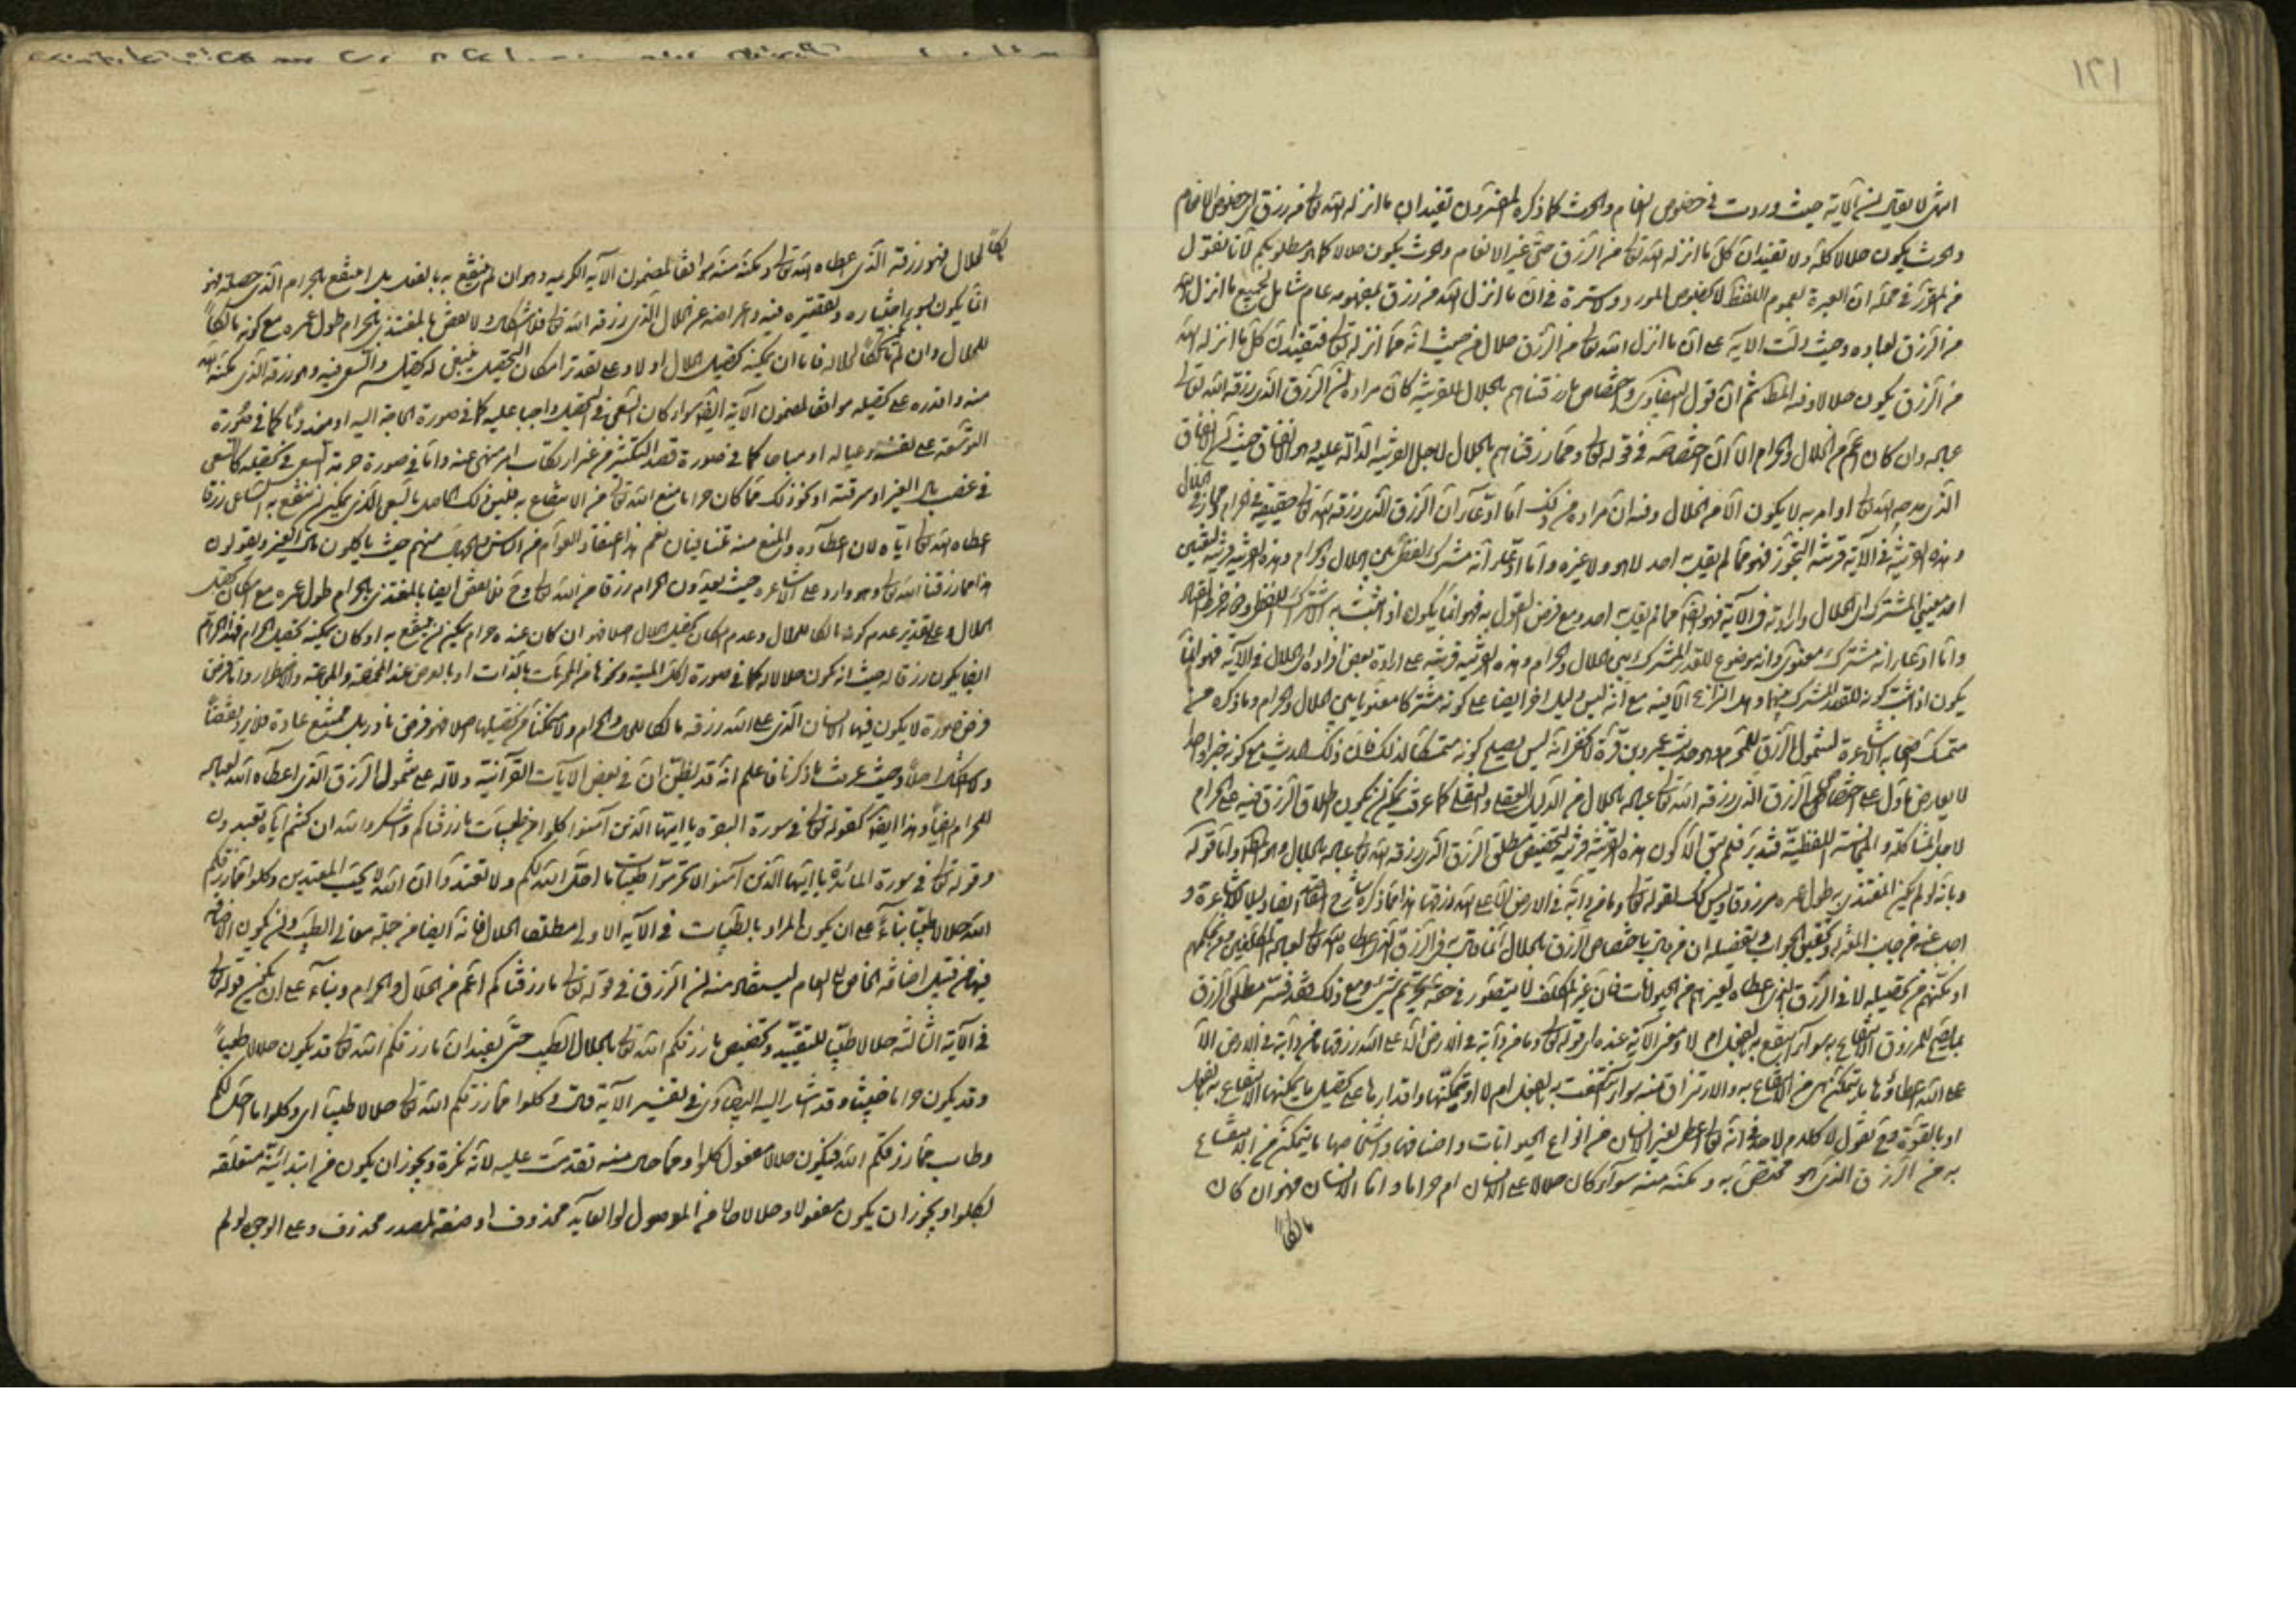 ١٢١
انتهى لا يقال ان الآية حيث وردت في خصوص الانعام والحرث كما ذكره المفسرون تفيد ان ما انزله الله تعالى من رزق اى خصوص الانعام
والحرث يكون حلالا كله ولا تفيد ان كل ما انزله الله تعالى من الرزق حتى غير الانعام والحرث يكون حلالا كما هو مطلوبكم لانا نقول
من المقرر في محله ان العبرة لعموم اللفظ لا لخصوص المورد ولا سترة في ان ما انزل الله من رزق بمفهومه عام شامل لجميع ما انزل الله
من الرزق لعباده وحيث دلت الآية على ان ما انزل الله تعالى من الرزق حلال من حيث انه مما انزله تعالى فتفيد ان كل ما انزله الله
من الرزق يكون حلالا وفيه المطلوب ثم ان قول البيضاوى واختصاص ما رزقناهم بالحلال للقرينة كان مراده ان الرزق الذى رزقه الله تعالى
عباده وان كان اعم من الحلال والحرام الا ان اختصاصه في قوله تعالى ومما رزقناهم بالحلال لاجل القرينة الدالة عليه وهو الانفاق حيث ان الانفاق
الذى مدحه الله تعالى او امر به لا يكون الا من الحلال وفيه ان مراده من ذلك اما ادعاء ان الرزق الذى رزقه الله تعالى حقيقة في الحرام مجاز في الحلال
وهذه القرينة في الآية قرينة التجوز فهو مما لم يقل به احد لا هو ولا غيره واما ادعاء انه مشترك لفظى بين الحلال والحرام وهذه القرينة قرينة لتعيين
احد معنيي المشترك اى الحلال وارادته في الآية فهو ايضا مما لم يقل به احد ومع فرض القول به فهو انما يكون اذ اثبت به الاشتراك اللفظى
واما ادعاء انه مشترك معنوى وانه موضوع للقدر المشترك بين الحلال والحرام وهذه القرينة قرينة على ارادة بعض افراده اى الحلال في الآية فهو انما
يكون اذ اثبت كونه للقدر المشترك بينهما وهذا النزاع الا فيه مع انه ليس دليل اخر ايضا على كونه مشتركا معنويا بين الحلال والحرام وما ذكره من
متمسك اصحابه الاشاعرة لشمول الرزق للحرام وهو حديث عمرو بن قرة لا يخفى انه ليس يصلح كونه متمسكا لذلك فان ذلك الحديث مع كونه خبرا واحدا
لا يعارض ما دل على اختصاص الرزق الذى رزقه الله تعالى عباده بالحلال من الدليل العقلى والنقلى كما عرفت يمكن ان يكون اطلاق الرزق فيه على الحرام
لاجل المشاكلة والمجانسة اللفظية فتدبر فلم يبق الا كون هذه القرينة قرينة لتخصيص مطلق الرزق الذى رزقه الله تعالى عباده بالحلال وهو المطلوب واما قوله
وبانه لو لم يكن المغتذى به طول عمره مرزوقا وليس كذلك لقوله تعالى وما من دابة في الارض الا على الله رزقها هذا مما ذكره شارح المقاصد ايضا دليلا للاشاعرة و
اجيب عنه من جانب المعتزلة وتحقيق الجواب وتفصيله ان من قال باختصاص الرزق بالحلال انما قال به في الرزق الذى اعطاه الله تعالى لعباده المكلفين من تمكنهم
او تمكنهم من تحصيله لا في الرزق الذى اعطاه لغيرهم من الحيوانات فان غير المكلف لا يتصور في حقه تحريم شىء ومع ذلك فقد فسر مطلق الرزق
بما يصح للمرزوق الانتفاع به سواء انتفع به بالفعل ام لا ومعنى الآية عنده اى قوله تعالى وما من دابة في الارض الا على الله رزقها ما من دابة في الارض الا
على الله اعطاؤها ما يتمكن من الانتفاع به والارتزاق منه سواء انتفعت به بالفعل ام لا او تمكينها واقدارها على تحصيل ما يمكنها الانتفاع به بالفعل
او بالقوة ومع نقول لا كلام لاحد في انه تعالى اعطى لغير الانسان من انواع الحيوانات واصنافها واشخاصها ما يتمكن من الانتفاع
به من الرزق الذى هو مختص به ويمكنه منه سواء كان حلالا على الانسان ام حراما واما الانسان فهو ان كان
مالكا
لكا للحلال فهو رزقه الذى اعطاه الله تعالى ومكنه منه موافقا لمضمون الآية الكريمة وهو ان لم ينتفع به بالفعل بل انتفع بالحرام الذى حصله فهو
انما يكون بسوء اختياره وتقصيره فيه واعراضه عن الحلال الذى رزقه الله تعالى فلا اشكال ولا نقض بالمغتذى بالحرام طول عمره مع كونه مالكا
للحلال وان لم يكن مالكا للحلال فاما ان يمكنه تحصيل الحلال او لا وعلى تقدير امكان التحصيل ينبغى له تحصيله والسعى فيه وهو رزقه الذى مكنه الله
منه واقدره على تحصيله موافقا لمضمون الآية ايضا سواء كان السعى في التحصيل واجبا عليه كما في صورة الحاجة اليه او مندوبا كما في صورة
التوسعة على نفسه وعياله او مباحا كما في صورة قصد التكثير من غير ارتكاب امر منهى عنه واما في صورة حرمة السعى في تحصيله كالسعى
في غصب مال الغير او سرقته او نحو ذلك مما كان حراما منع الله تعالى من الانتفاع به فليس ذلك الحاصل بالسعى الذى يمكن ان ينتفع به الساعى رزقا
اعطاه الله تعالى اياه لان اعطاءه والمنع منه متنافيان نعم هذا اعتقاد العوام من الناس والجهال منهم حيث ياكلون مال الغير ويقولون
هذا مما رزقنا الله تعالى وهو وارد على الاشاعرة حيث يعدون الحرام رزقا من الله تعالى وح فلا نقض ايضا بالمغتذى بالحرام طول عمره مع امكان تحصيل
الحلال وعلى تقدير عدم كونه مالكا للحلال وعدم امكان تحصيل الحلال اصلا فهو ان كان عنده حرام يمكن ان ينتفع به او كان يمكنه تحصيل الحرام فهذا الحرام
ايضا يكون رزقا له حيث انه يكون حلالا له كما في صورة اكل الميتة ونحوها من المحرمات بالذات او بالعرض عند المخمصة والمجاعة والاضطرار واما فرض
فرض صورة لا يكون فيها الانسان الذى على الله رزقه مالكا للحلال والحرام ولا متمكنا من تحصيلها اصلا فهو فرض نادر بل ممتنع عادة فلا يرد نقضا
ولا اشكال اصلا وحيث عرفت ما ذكرنا فاعلم انه قد يظن ان في بعض الآيات القرآنية دلالة على شمول الرزق الذى اعطاه الله لعباده
للحرام ايضا وهذا ايضا كقوله تعالى في سورة البقرة يا ايها الذين آمنوا كلوا من طيبات ما رزقناكم واشكروا لله ان كنتم اياه تعبدون
وقوله تعالى في سورة المائدة يا ايها الذين آمنوا لا تحرموا طيبات ما احل الله لكم ولا تعتدوا ان الله لا يحب المعتدين وكلوا مما رزقكم
الله حلالا طيبا بناء على ان يكون المراد بالطيبات في الآية الاولى مطلق الحلال فانه ايضا من جملة معانى الطيب وان يكون الاضافة
فيها من قبيل اضافة الخاص الى العام ليستفاد منه ان الرزق في قوله تعالى ما رزقناكم اعم من الحلال والحرام وبناء على ان يكون قوله تعالى
في الآية الثالثة حلالا طيبا للتقييد وتخصيص ما رزقكم الله تعالى بالحلال الطيب حتى يفيد ان ما رزقكم الله تعالى قد يكون حلالا طيبا
وقد يكون حراما خبيثا وقد اشار اليه البيضاوى في تفسير الآية قال في كلوا مما رزقكم الله تعالى حلالا طيبا اى وكلوا ما احل لكم
وطاب مما رزقكم الله فيكون حلالا مفعول كلوا ومما حال منه تقدمت عليه لانه نكرة ويجوز ان يكون من ابتدائية متعلقة
لكلوا ويجوز ان يكون مفعولا وحلالا حالا من الموصول او العايد محذوف او صفة لمصدر محذوف وعلى الوجوه لو لم